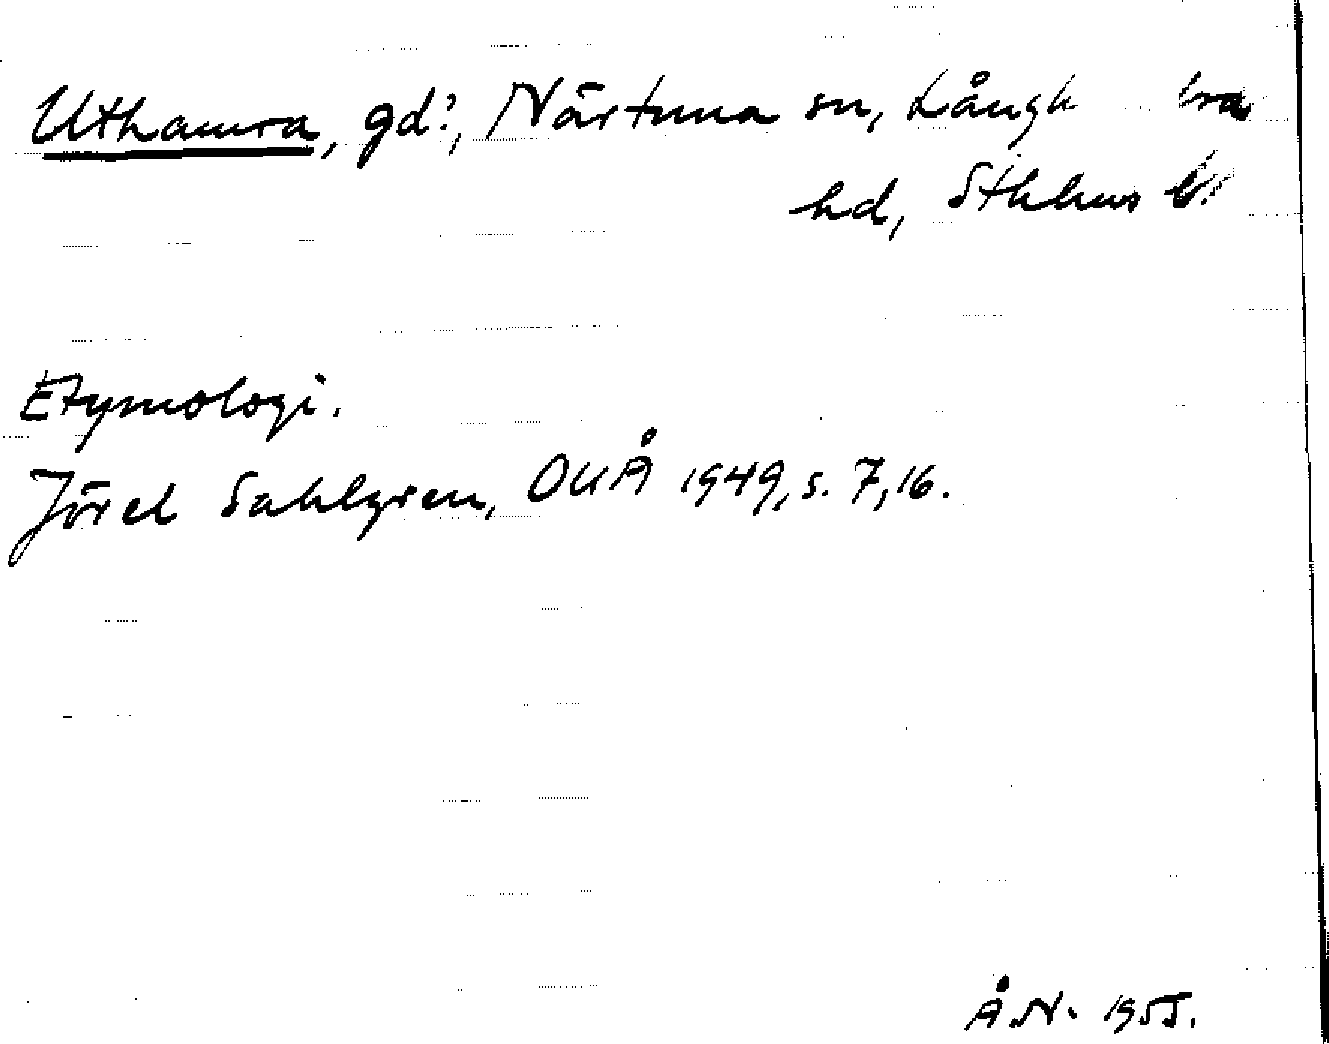 Uthamra, gd?, Närtuna sn, Långh
hd, Sthlms l.
Etymologi.
Jöran Sahlgren, OUÅ 1949, s. 7, 16.
Å.N. 1955.